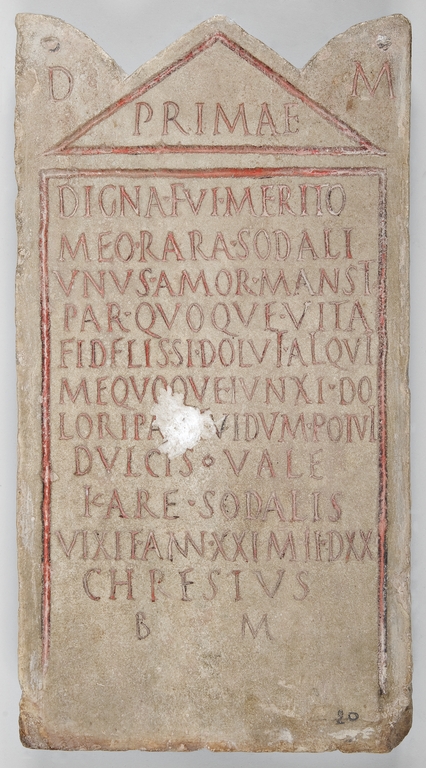 D M
PRIMAE
DIGNA·FVI·MERITO
MEO·RARA·SODALI
VNVS·AMOR·MANSI
PAR·QVOQVE·VITA
FIDELISSI·DOLVI
MEQVOQVE·IVNXI·DO
LORI VIDVM·POTVI
DVLCIS VALE
KARE·SODALIS
VIXIT·ANN·XXI·M·II·DXX
CHRESIVS
B M
20